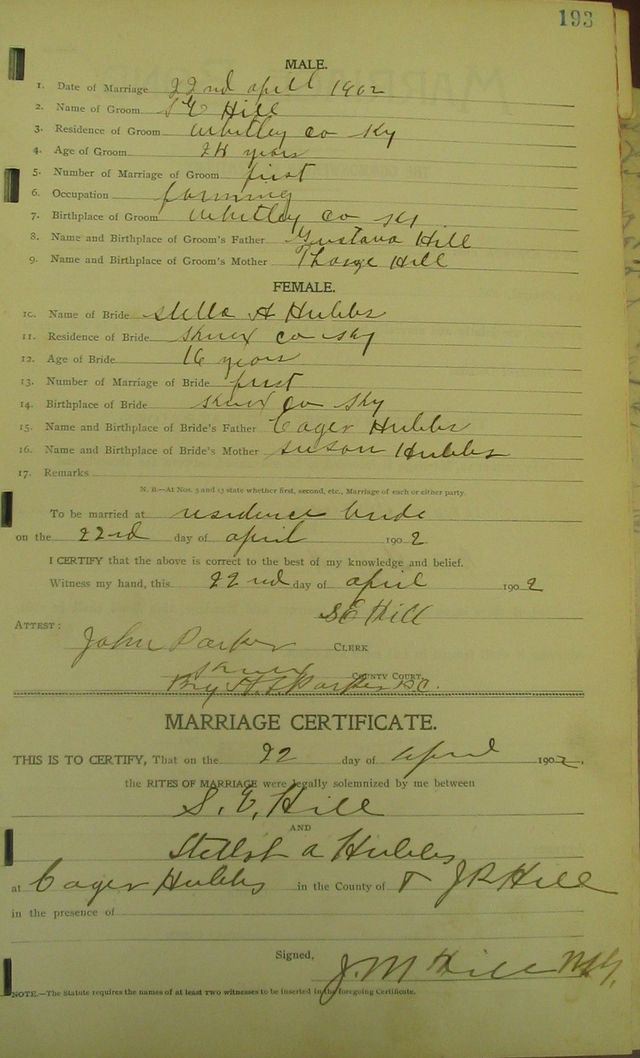 193
MALE.
1. Date of Marriage 22nd april 1902
2. Name of Groom S E Hill
3. Residence of Groom Whitley co Ky
4. Age of Groom 24 years
5. Number of Marriage of Groom first
6. Occupation farming
7. Birthplace of Groom Whitley co Ky
8. Name and Birthplace of Groom's Father Hill
9. Name and Birthplace of Groom's Mother Hill
FEMALE.
10. Name of Bride Stella A Hubbs
11. Residence of Bride Knox co Ky
12. Age of Bride 16 years
13. Number of Marriage of Bride first
14. Birthplace of Bride Knox co Ky
15. Name and Birthplace of Bride's Father Cager Hubbs
16. Name and Birthplace of Bride's Mother Susan Hubbs
17. Remarks
N. B.—At Nos. 5 and 13 state whether first, second, etc., Marriage of each or either party.
To be married at residence bride
on the 22nd day of april 1902
I CERTIFY that the above is correct to the best of my knowledge and belief.
Witness my hand, this 22nd day of april 1902
S E Hill
ATTEST:
John Parker CLERK
Knox COUNTY COURT
By Parker D.C.
MARRIAGE CERTIFICATE.
THIS IS TO CERTIFY, That on the 22 day of april 1902.
the RITES OF MARRIAGE were legally solemnized by me between
S. E. Hill
AND
a Hubbs
at Cager Hubbs in the County of J R Hill
in the presence of
Signed,
J. M Hill
NOTE.—The Statute requires the names of at least two witnesses to be inserted in the foregoing Certificate.